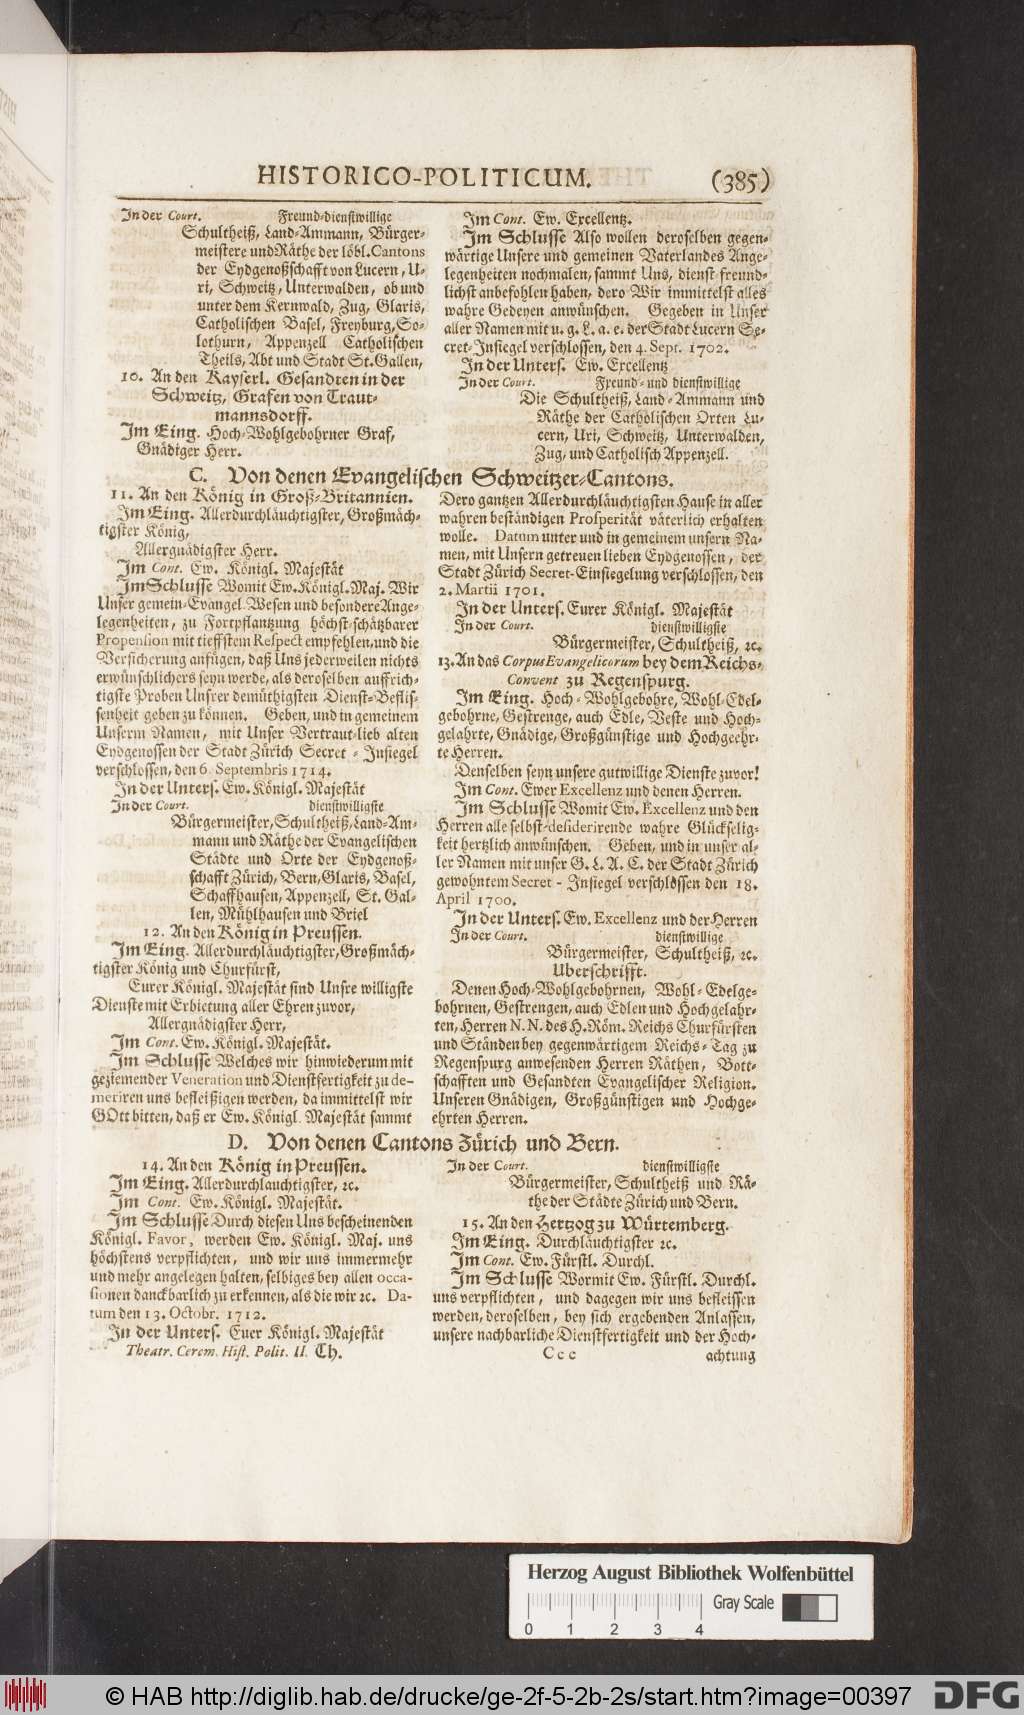 HISTORICO-POLITICUM. (385)
In der Court. Freund-dienstwillige
Schultheiß, Land-Ammann, Bürger-
meistere und Räthe der löbl. Cantons
der Eydgenoßschafft von Lucern, U-
ri, Schweitz, Unterwalden, ob und
unter dem Kernwald, Zug, Glaris,
Catholischen Basel, Freyburg, So-
lothurn, Appenzell Catholischen
Theils, Abt und Stadt St. Gallen,
10. An den Kayserl. Gesandten in der
Schweitz, Grafen von Traut-
mannsdorff.
Im Eing. Hoch-Wohlgebohrner Graf,
Gnädiger Herr.
Im Cont. Ew. Excellentz.
Im Schlusse Also wollen deroselben gegen-
wärtige Unsere und gemeinen Vaterlandes Ange-
legenheiten nochmalen, sammt Uns, dienst-freund-
lichst anbefohlen haben, dero Wir immittelst alles
wahre Gedeyen anwünschen. Gegeben in Unser
aller Namen mit u. g. L. a. e. der Stadt Lucern Se-
cret-Insiegel verschlossen, den 4. Sept. 1702.
In der Unters. Ew. Excellentz
In der Court. Freund- und dienstwillige
Die Schultheiß, Land-Ammann und
Räthe der Catholischen Orten Lu-
cern, Uri, Schweitz, Unterwalden,
Zug, und Catholisch Appenzell.
C. Von denen Evangelischen Schweitzer-Cantons.
11. An den König in Groß-Britannien.
Im Eing. Allerdurchläuchtigster, Großmäch-
tigster König,
Allergnädigster Herr.
Im Cont. Ew. Königl. Majestät
Im Schlusse Womit Ew. Königl. Maj. Wir
Unser gemein-Evangel. Wesen und besondere Ange-
legenheiten, zu Fortpflantzung höchst-schätzbarer
Propension mit tieffstem Respect empfehlen, und die
Versicherung anfügen, daß Uns jederweilen nichts
erwünschlichers seyn werde, als deroselben auffrich-
tigste Proben Unsrer demüthigsten Dienst-Beflis-
senheit geben zu können. Geben, und in gemeinem
Unserm Namen, mit Unser Vertraut-lieb alten
Eydgenossen der Stadt Zürich Secret-Insiegel
verschlossen, den 6. Septembris 1714.
In der Unters. Ew. Königl. Majestät
In der Court. dienstwilligste
Bürgermeister, Schultheiß, Land-Am-
mann und Räthe der Evangelischen
Städte und Orte der Eydgenoß-
schafft Zürich, Bern, Glaris, Basel,
Schaffhausen, Appenzell, St. Gal-
len, Mühlhausen und Briel
12. An den König in Preussen.
Im Eing. Allerdurchläuchtigster, Großmäch-
tigster König und Churfürst,
Eurer Königl. Majestät sind Unsre willigste
Dienste mit Erbietung aller Ehren zuvor,
Allergnädigster Herr,
Im Cont. Ew. Königl. Majestät.
Im Schlusse Welches wir hinwiederum mit
geziemender Veneration und Dienstfertigkeit zu de-
meriren uns befleißigen werden, da immittelst wir
GOtt bitten, daß er Ew. Königl. Majestät sammt
Dero gantzen Allerdurchläuchtigsten Hause in aller
wahren beständigen Prosperität väterlich erhalten
wolle. Datum unter und in gemeinem unsern Na-
men, mit Unsern getreuen lieben Eydgenossen, der
Stadt Zürich Secret-Einsiegelung verschlossen, den
2. Martii 1701.
In der Unters. Eurer Königl. Majestät
In der Court. dienstwilligste
Bürgermeister, Schultheiß, ꝛc.
13. An das Corpus Evangelicorum bey dem Reichs-
Convent zu Regenspurg.
Im Eing. Hoch-Wohlgebohre, Wohl-Edel-
gebohrne, Gestrenge, auch Edle, Veste und Hoch-
gelahrte, Gnädige, Großgünstige und Hochgeehr-
te Herren.
Denselben seyn unsere gutwillige Dienste zuvor!
Im Cont. Ewer Excellenz und denen Herren.
Im Schlusse Womit Ew. Excellenz und den
Herren alle selbst-desiderirende wahre Glückselig-
keit hertzlich anwünschen. Geben, und in unser al-
ler Namen mit unser G. L. A. C. der Stadt Zürich
gewohntem Secret-Insiegel verschlossen den 18.
April 1700.
In der Unters. Ew. Excellenz und der Herren
In der Court. dienstwillige
Bürgermeister, Schultheiß, ꝛc.
Uberschrifft.
Denen Hoch-Wohlgebohrnen, Wohl-Edelge-
bohrnen, Gestrengen, auch Edlen und Hochgelahr-
ten, Herren N. N. des H. Röm. Reichs Churfürsten
und Ständen bey gegenwärtigem Reichs-Tag zu
Regenspurg anwesenden Herren Räthen, Bott-
schafften und Gesandten Evangelischer Religion.
Unseren Gnädigen, Großgünstigen und Hochge-
ehrten Herren.
D. Von denen Cantons Zürich und Bern.
14. An den König in Preussen.
Im Eing. Allerdurchlauchtigster, ꝛc.
Im Cont. Ew. Königl. Majestät.
Im Schlusse Durch diesen Uns bescheinenden
Königl. Favor, werden Ew. Königl. Maj. uns
höchstens verpflichten, und wir uns immermehr
und mehr angelegen halten, selbiges bey allen occa-
sionen danckbarlich zu erkennen, als die wir ꝛc. Da-
tum den 13. Octobr. 1712.
In der Unters. Euer Königl. Majestät
Theatr. Cerem. Hist. Polit. II. Th.
In der Court. dienstwilligste
Bürgermeister, Schultheiß und Rä-
the der Städte Zürich und Bern.
15. An den Hertzog zu Würtemberg.
Im Eing. Durchläuchtigster ꝛc.
Im Cont. Ew. Fürstl. Durchl.
Im Schlusse Wormit Ew. Fürstl. Durchl.
uns verpflichten, und dagegen wir uns befleissen
werden, deroselben, bey sich ergebenden Anlassen,
unsere nachbarliche Dienstfertigkeit und der Hoch-
Ccc achtung
Herzog August Bibliothek Wolfenbüttel
Gray Scale
0 1 2 3 4
© HAB http://diglib.hab.de/drucke/ge-2f-5-2b-2s/start.htm?image=00397
DFG